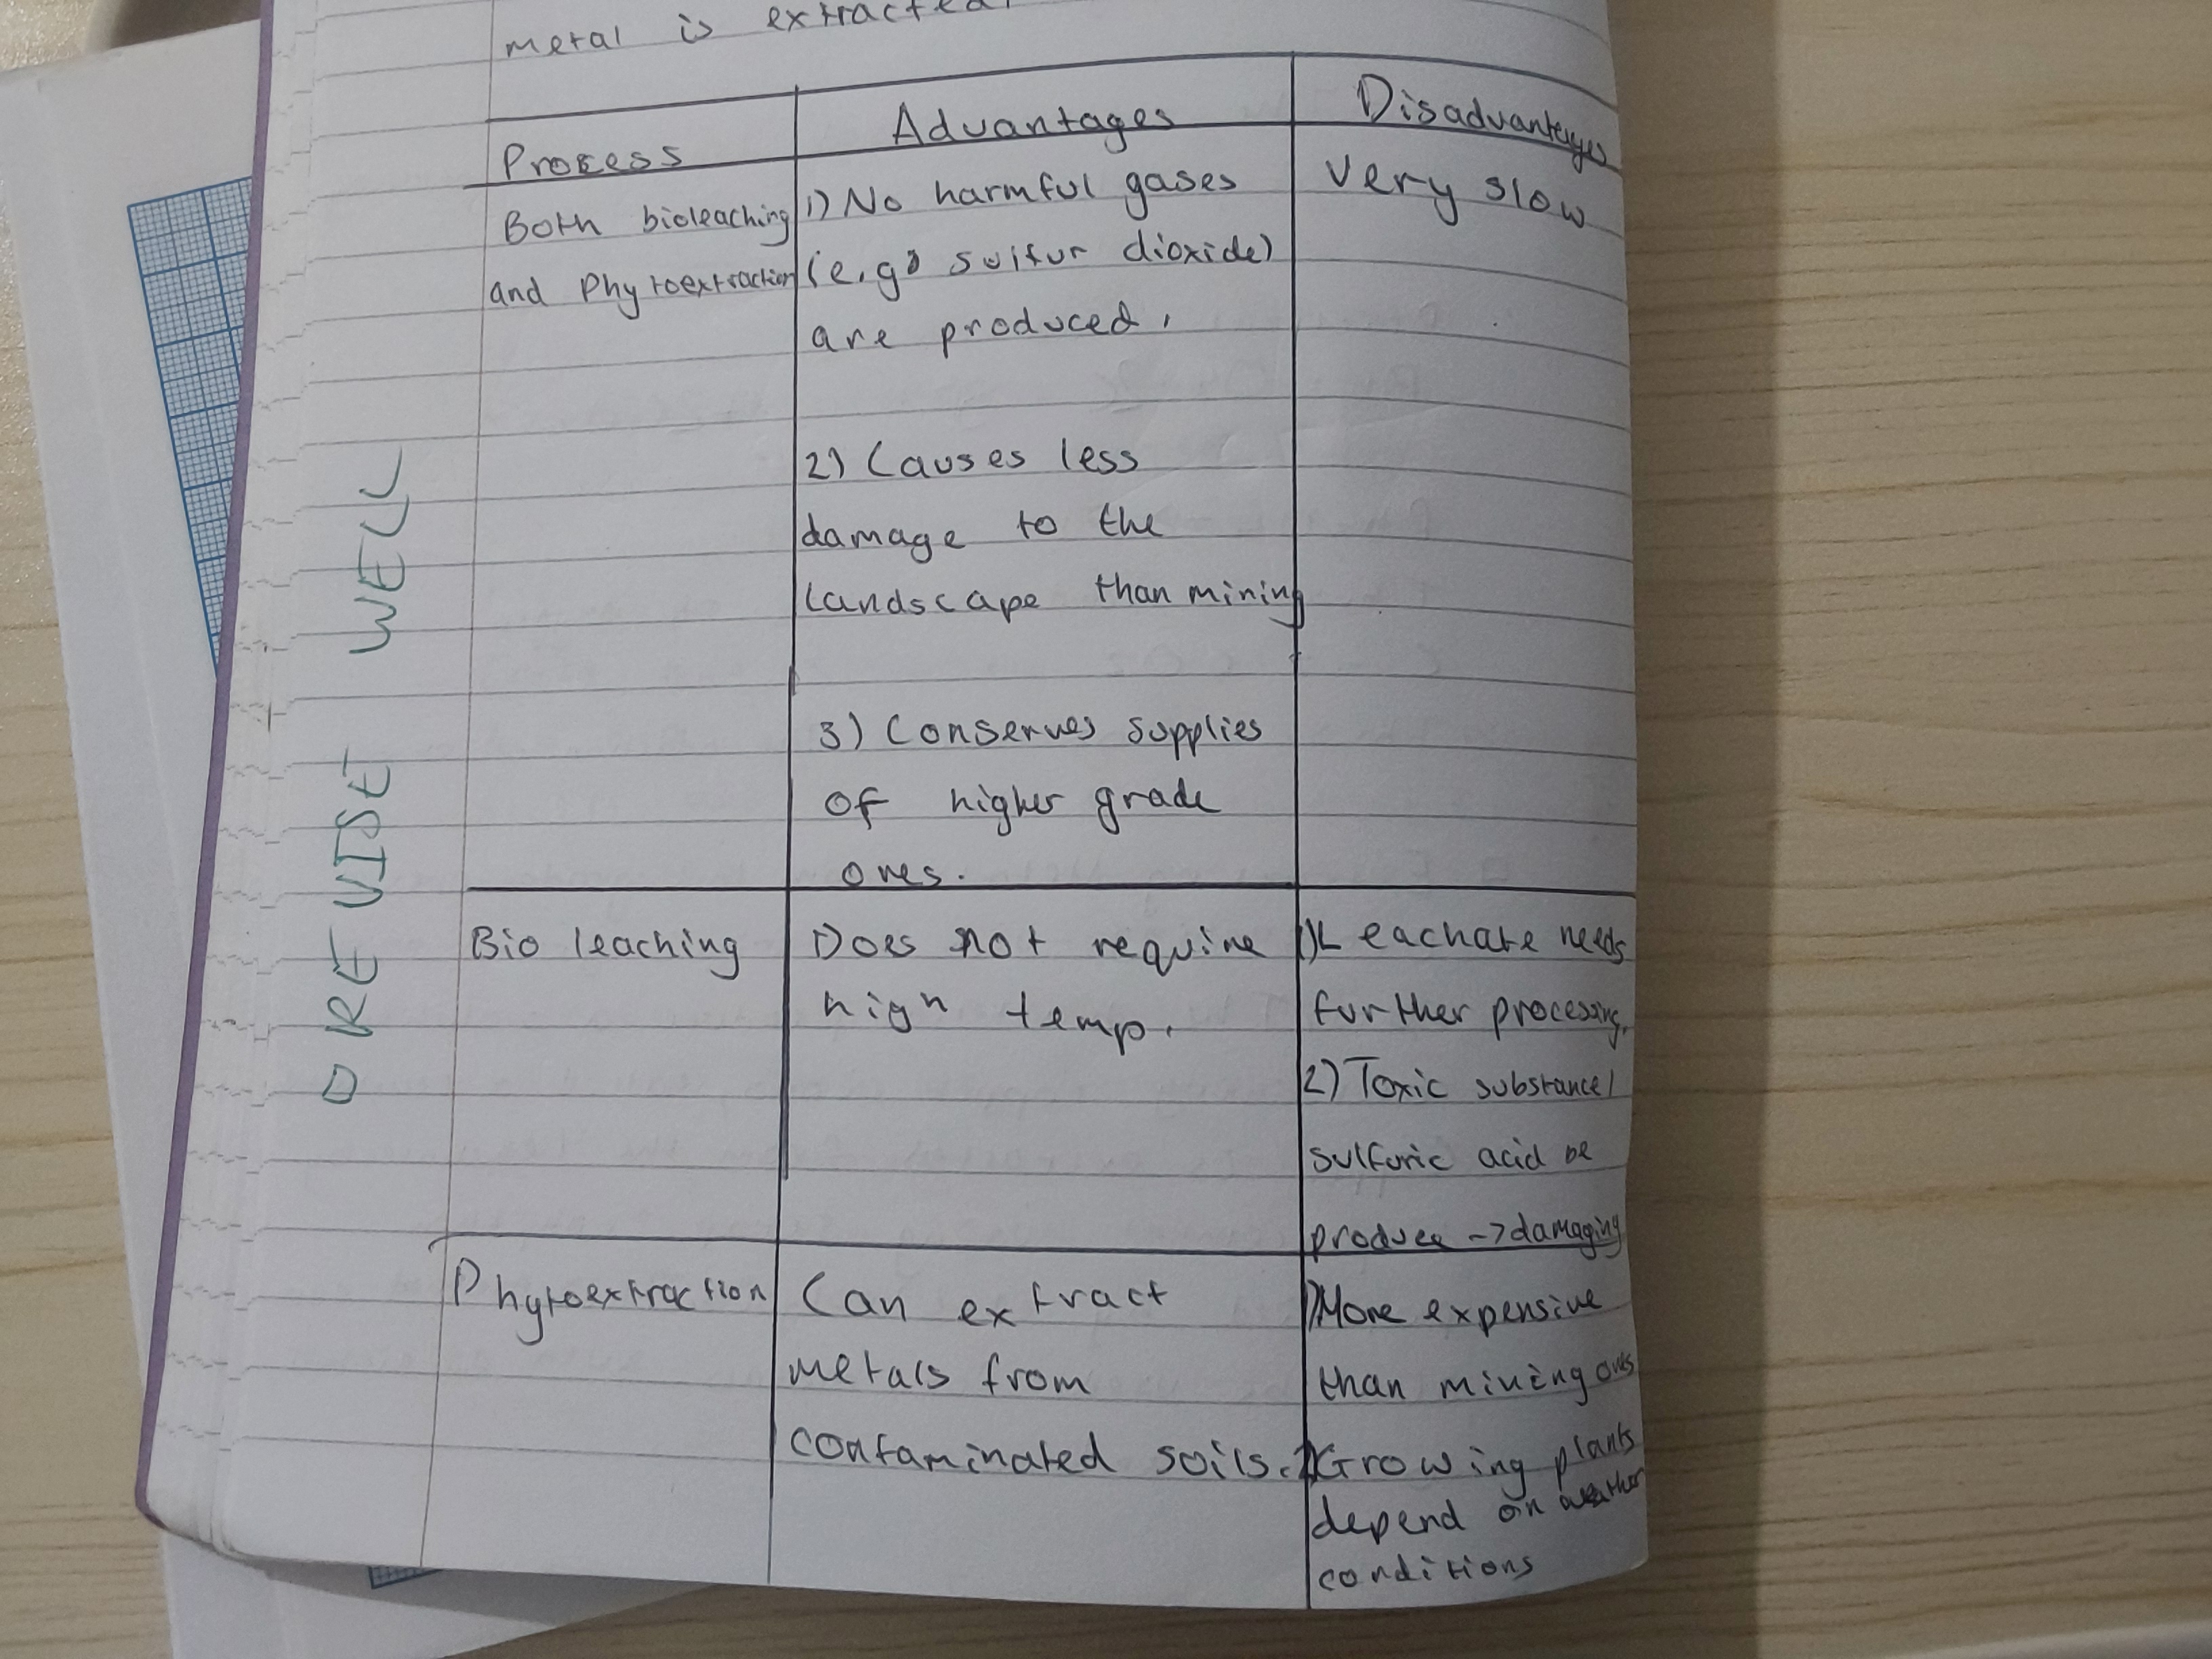 metal is extracted.
Process
Advantages
Disadvantages
Both bioleaching
and Phytoextraction
1) No harmful gases
(e.g. sulfur dioxide)
are produced.
2) Causes less
damage to the
landscape than mining
3) Conserves supplies
of higher grade
ores.
very slow
Bio leaching
Does not require
high temp.
1) Leachate needs
further processing.
2) Toxic substance/
sulfuric acid be
produce -> damaging
Phytoextraction
Can extract
metals from
contaminated soils.
1) More expensive
than mining ores
2) Growing plants
depend on weather
conditions
REVISE WELL